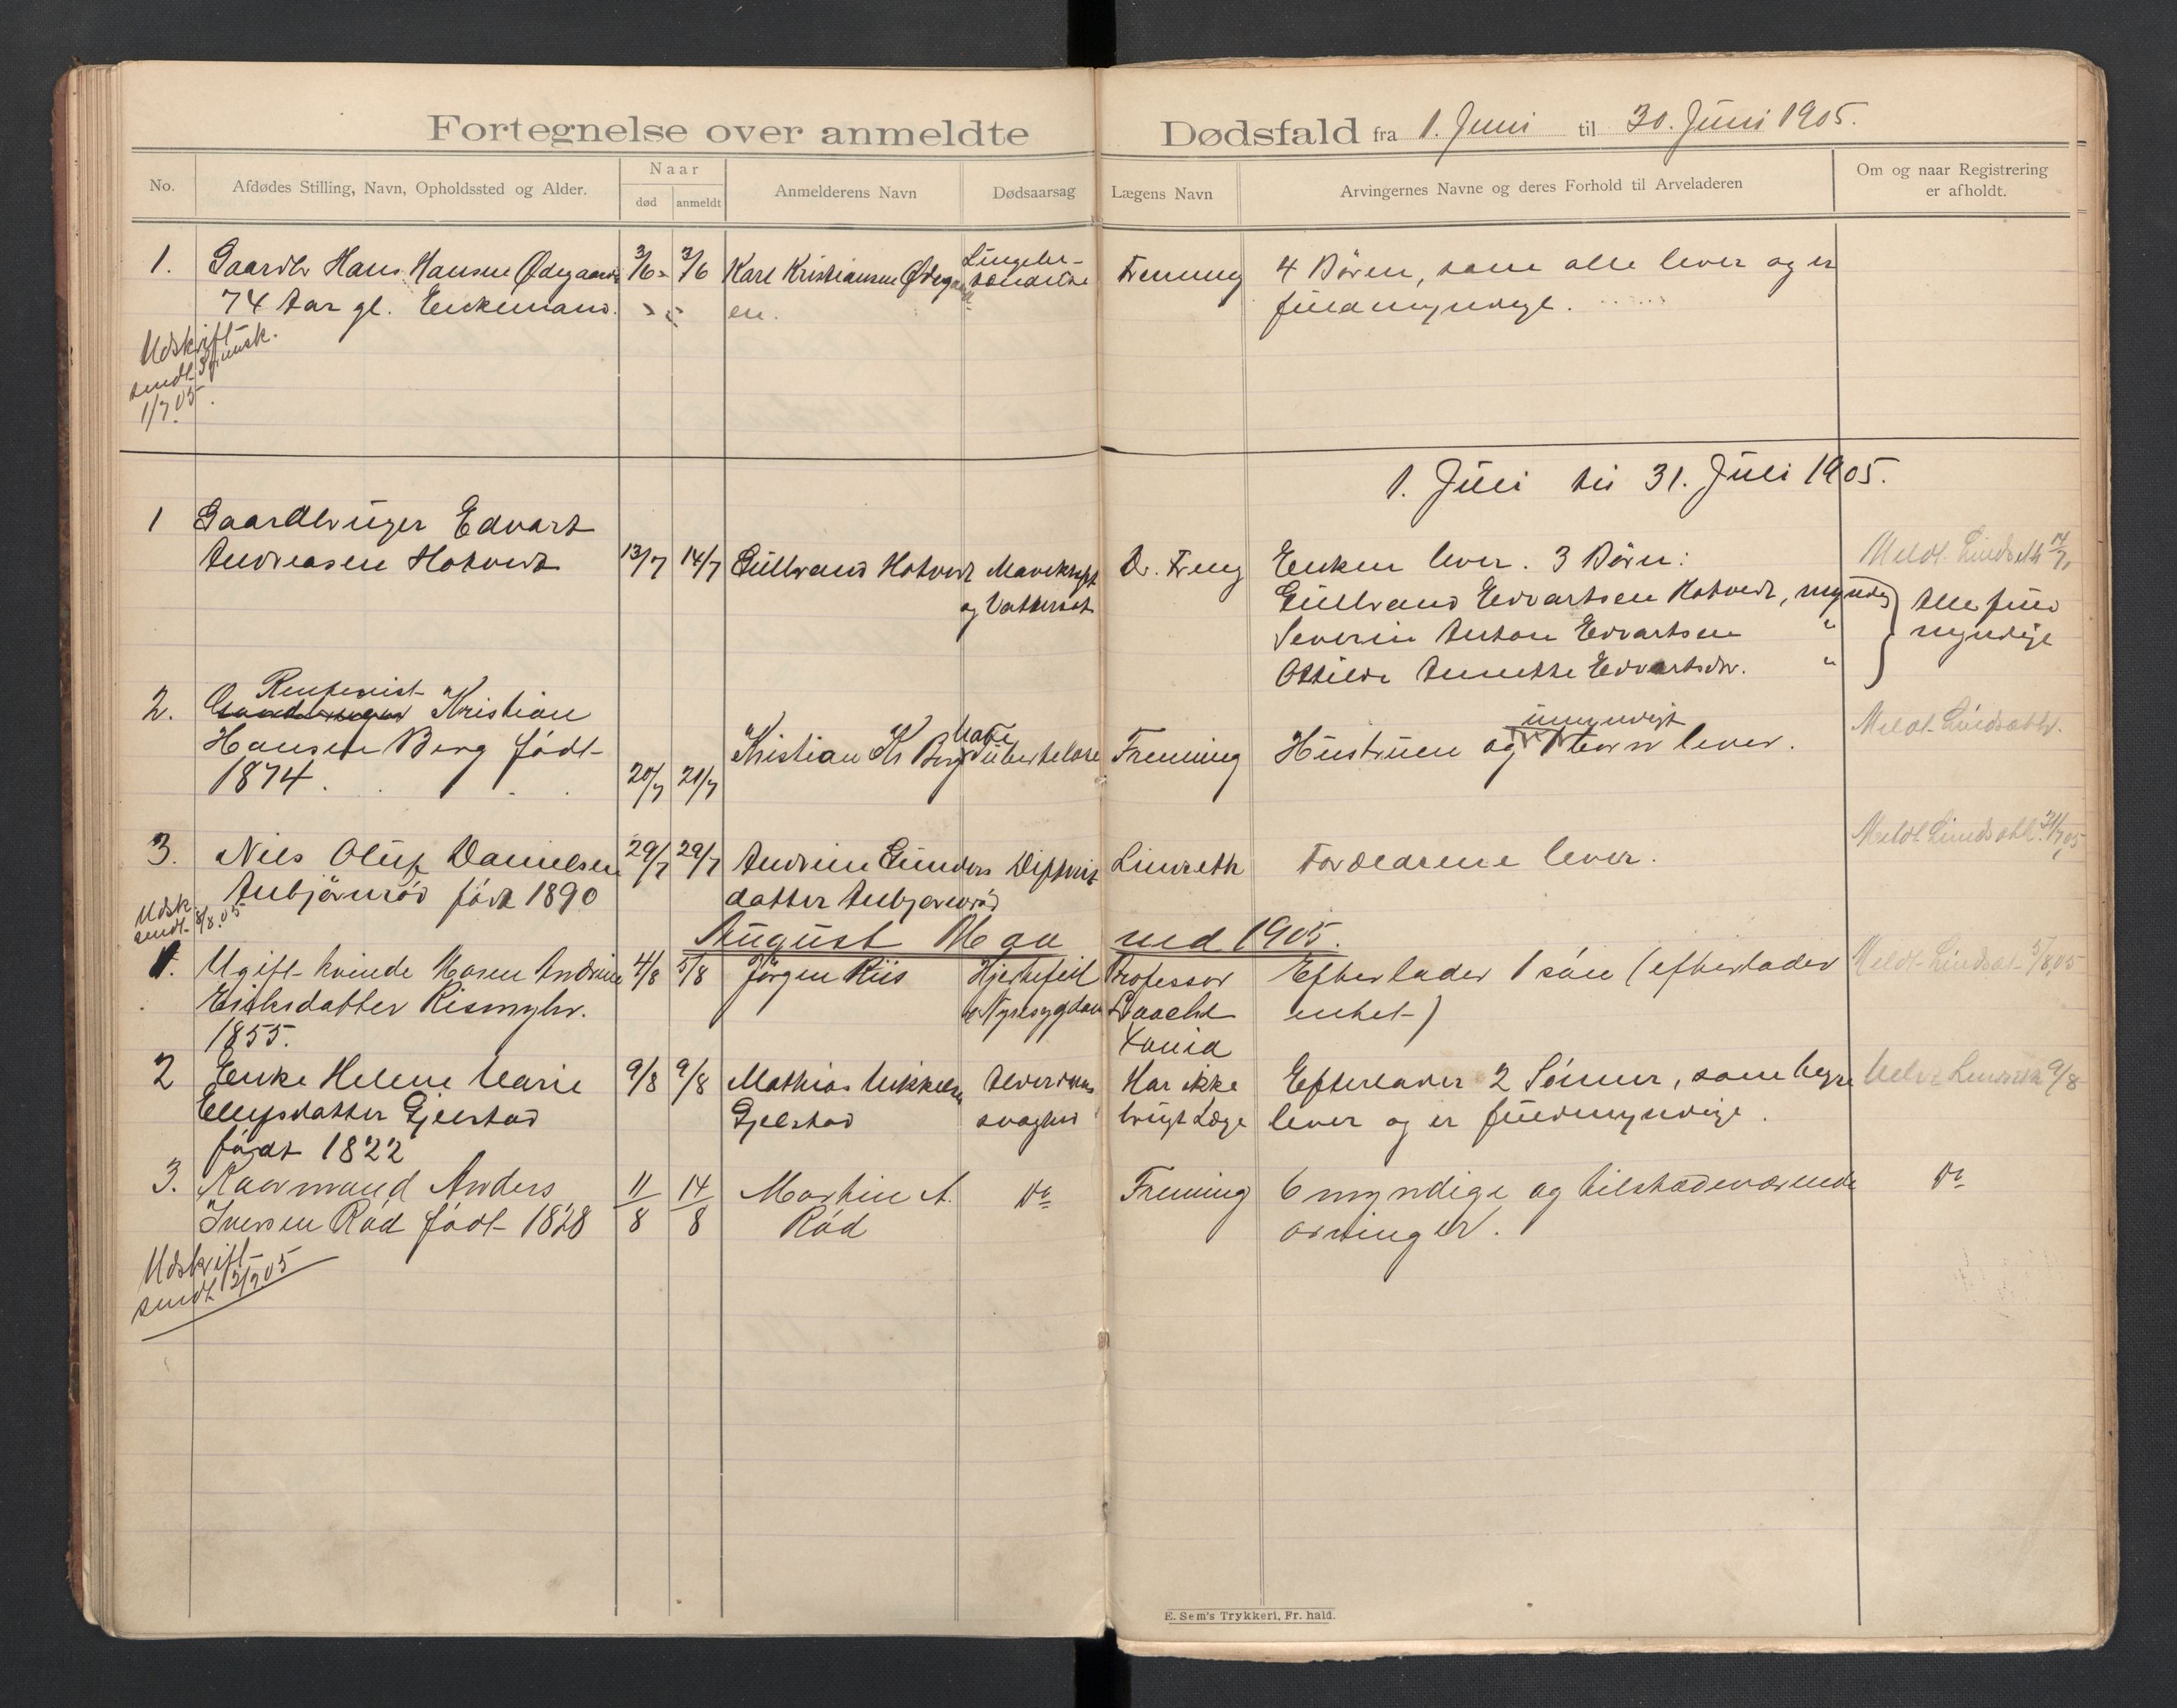 Fortegnelse over anmeldte Dødsfald fra 1. Juni til 30. Juni 1905.
No. Afdødes Stilling, Navn, Opholdssted og Alder. Naar død anmeldt Anmelderens Navn Dødsaarsag Lægens Navn Arvingernes Navne og deres Forhold til Arveladeren Om og naar Registrering er afholdt.
1. Gaardbr Hans Hansen Ødegaard 3/6 3/6 Karl Kristiansen Ødegaard Frenning 4 Børn, som alle lever og er
74 Aar gl. Enkemand. en. fuldmyndige.
Udskrift
sendt
1/7 05.
1. Juli til 31. Juli 1905.
1 Gaardbruger Edvart
Andreasen Hotvedt 13/7 14/7 Gullvand Hotvedt Mavekræft Dr. Freng Enken lever. 3 Børn: Meldt Lindseth 14/7
og Vattersot Gullvand Edvartsen Hotvedt, myndig Alle fuld
Severin Anton Edvartsen " myndige
Ottilde Annette Edvartsdtr. "
2. Rentenist
Gaardbruger Kristian umyndigt Meldt Lindseth.
Hansen Berg født Kristian Kr Berg Tuberkelose Frenning Hustruen og 1 barn lever.
1874. 20/7 21/7
3. Niels Oluf Danielsen 29/7 29/7 Andrine Gunders Difterit Lindseth Forældrene lever. Meldt Lindseth 31/7 05
Anbjørnrød født 1890 datter Anbjørnrød
Udsk.
sendt 8/8.05
August Maaned 1905.
1. Ugift kvinde Maren Andrine 4/8 5/8 Jørgen Riis Hjertefeil Professor Efterlader 1 søn (efterlader Meldt Lindset 5/8 05
Eriksdatter Rismyhr. & Nyresygdom Laache intet)
1855. Xania
2 Enke Helene Marie 9/8 9/8 Mathias Mikkelsen Alderdoms Har ikke Efterlader 2 Sønner, som begge Meldt Lindseth 9/8
Ellefsdatter Gjelstad Gjelstad svaghed brugt Læge lever og er fuldmyndige.
født 1822
3. Kaarmand Anders 11/8 14/8 Martin A. Do Frenning 6 myndige og tilstedeværende Do
Iversen Rød født 1828 Rød arvinger.
Udskrift
sendt 12/9 05
E. Sem's Trykkeri, Fr. hald.